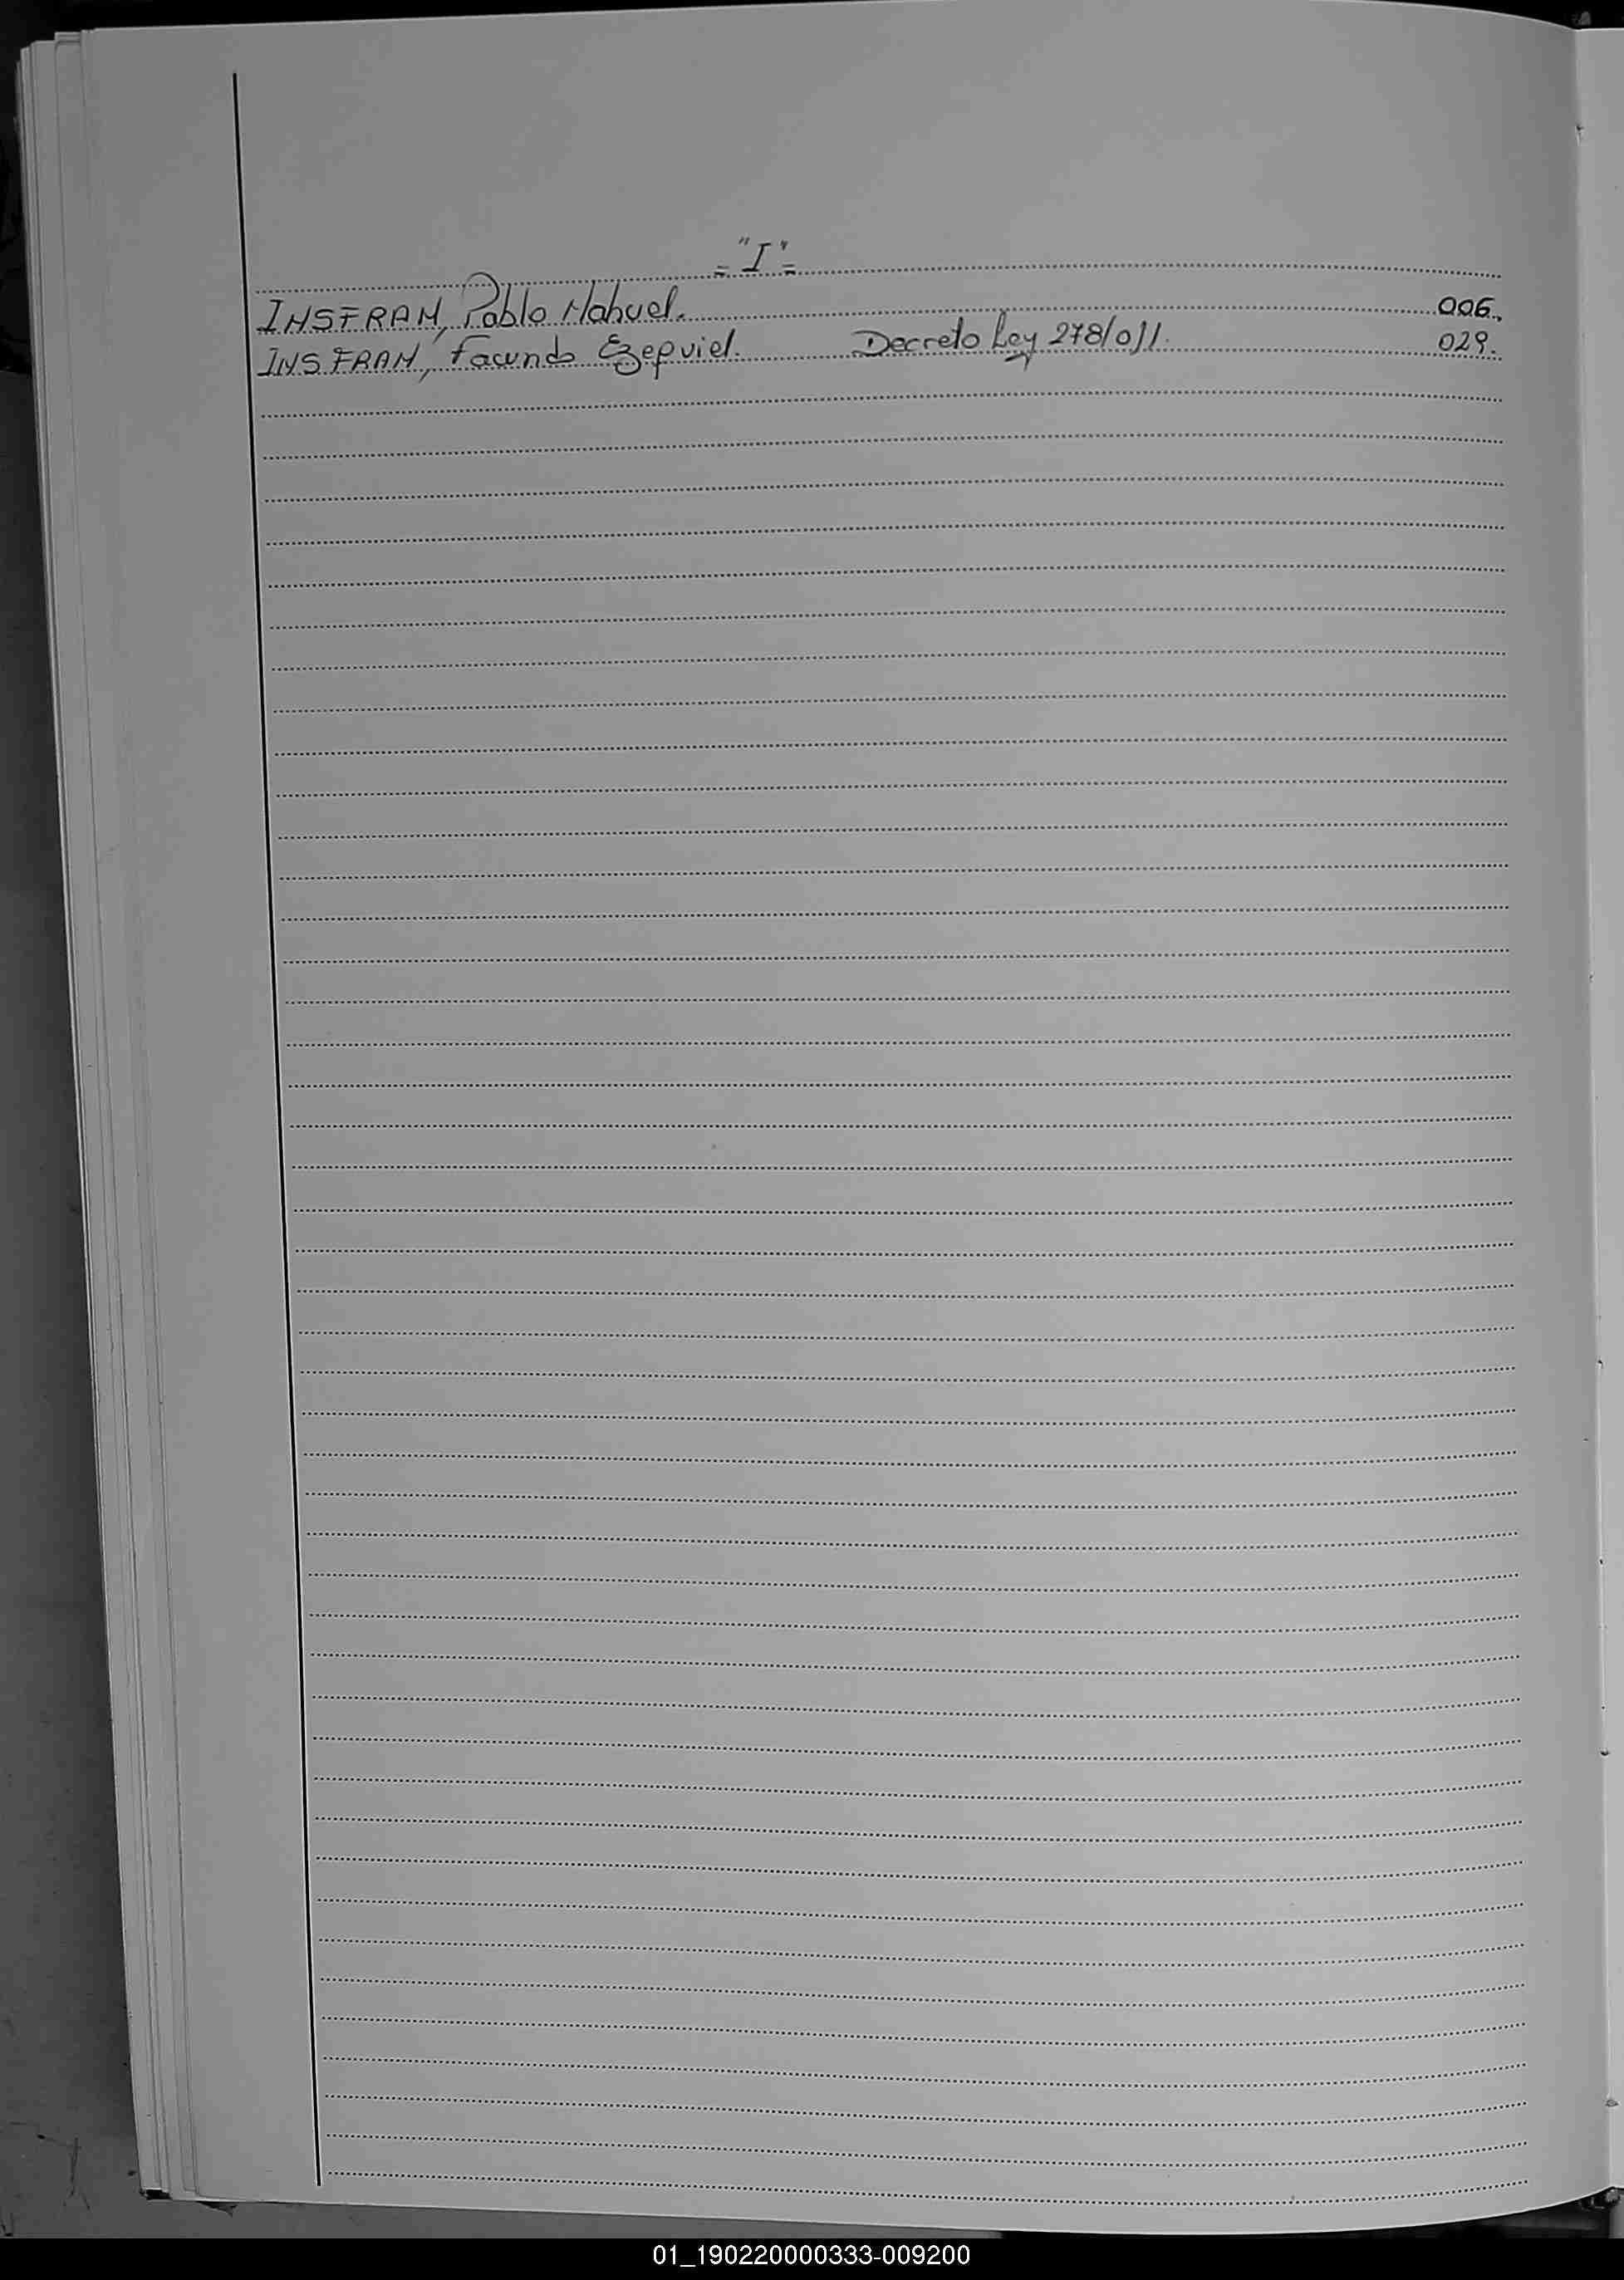 ="I"=
INSFRAN, Pablo Nahuel. 006.
INSFRAN, Facundo Ezequiel. Decreto Ley 278/011. 029.
01_190220000333-009200